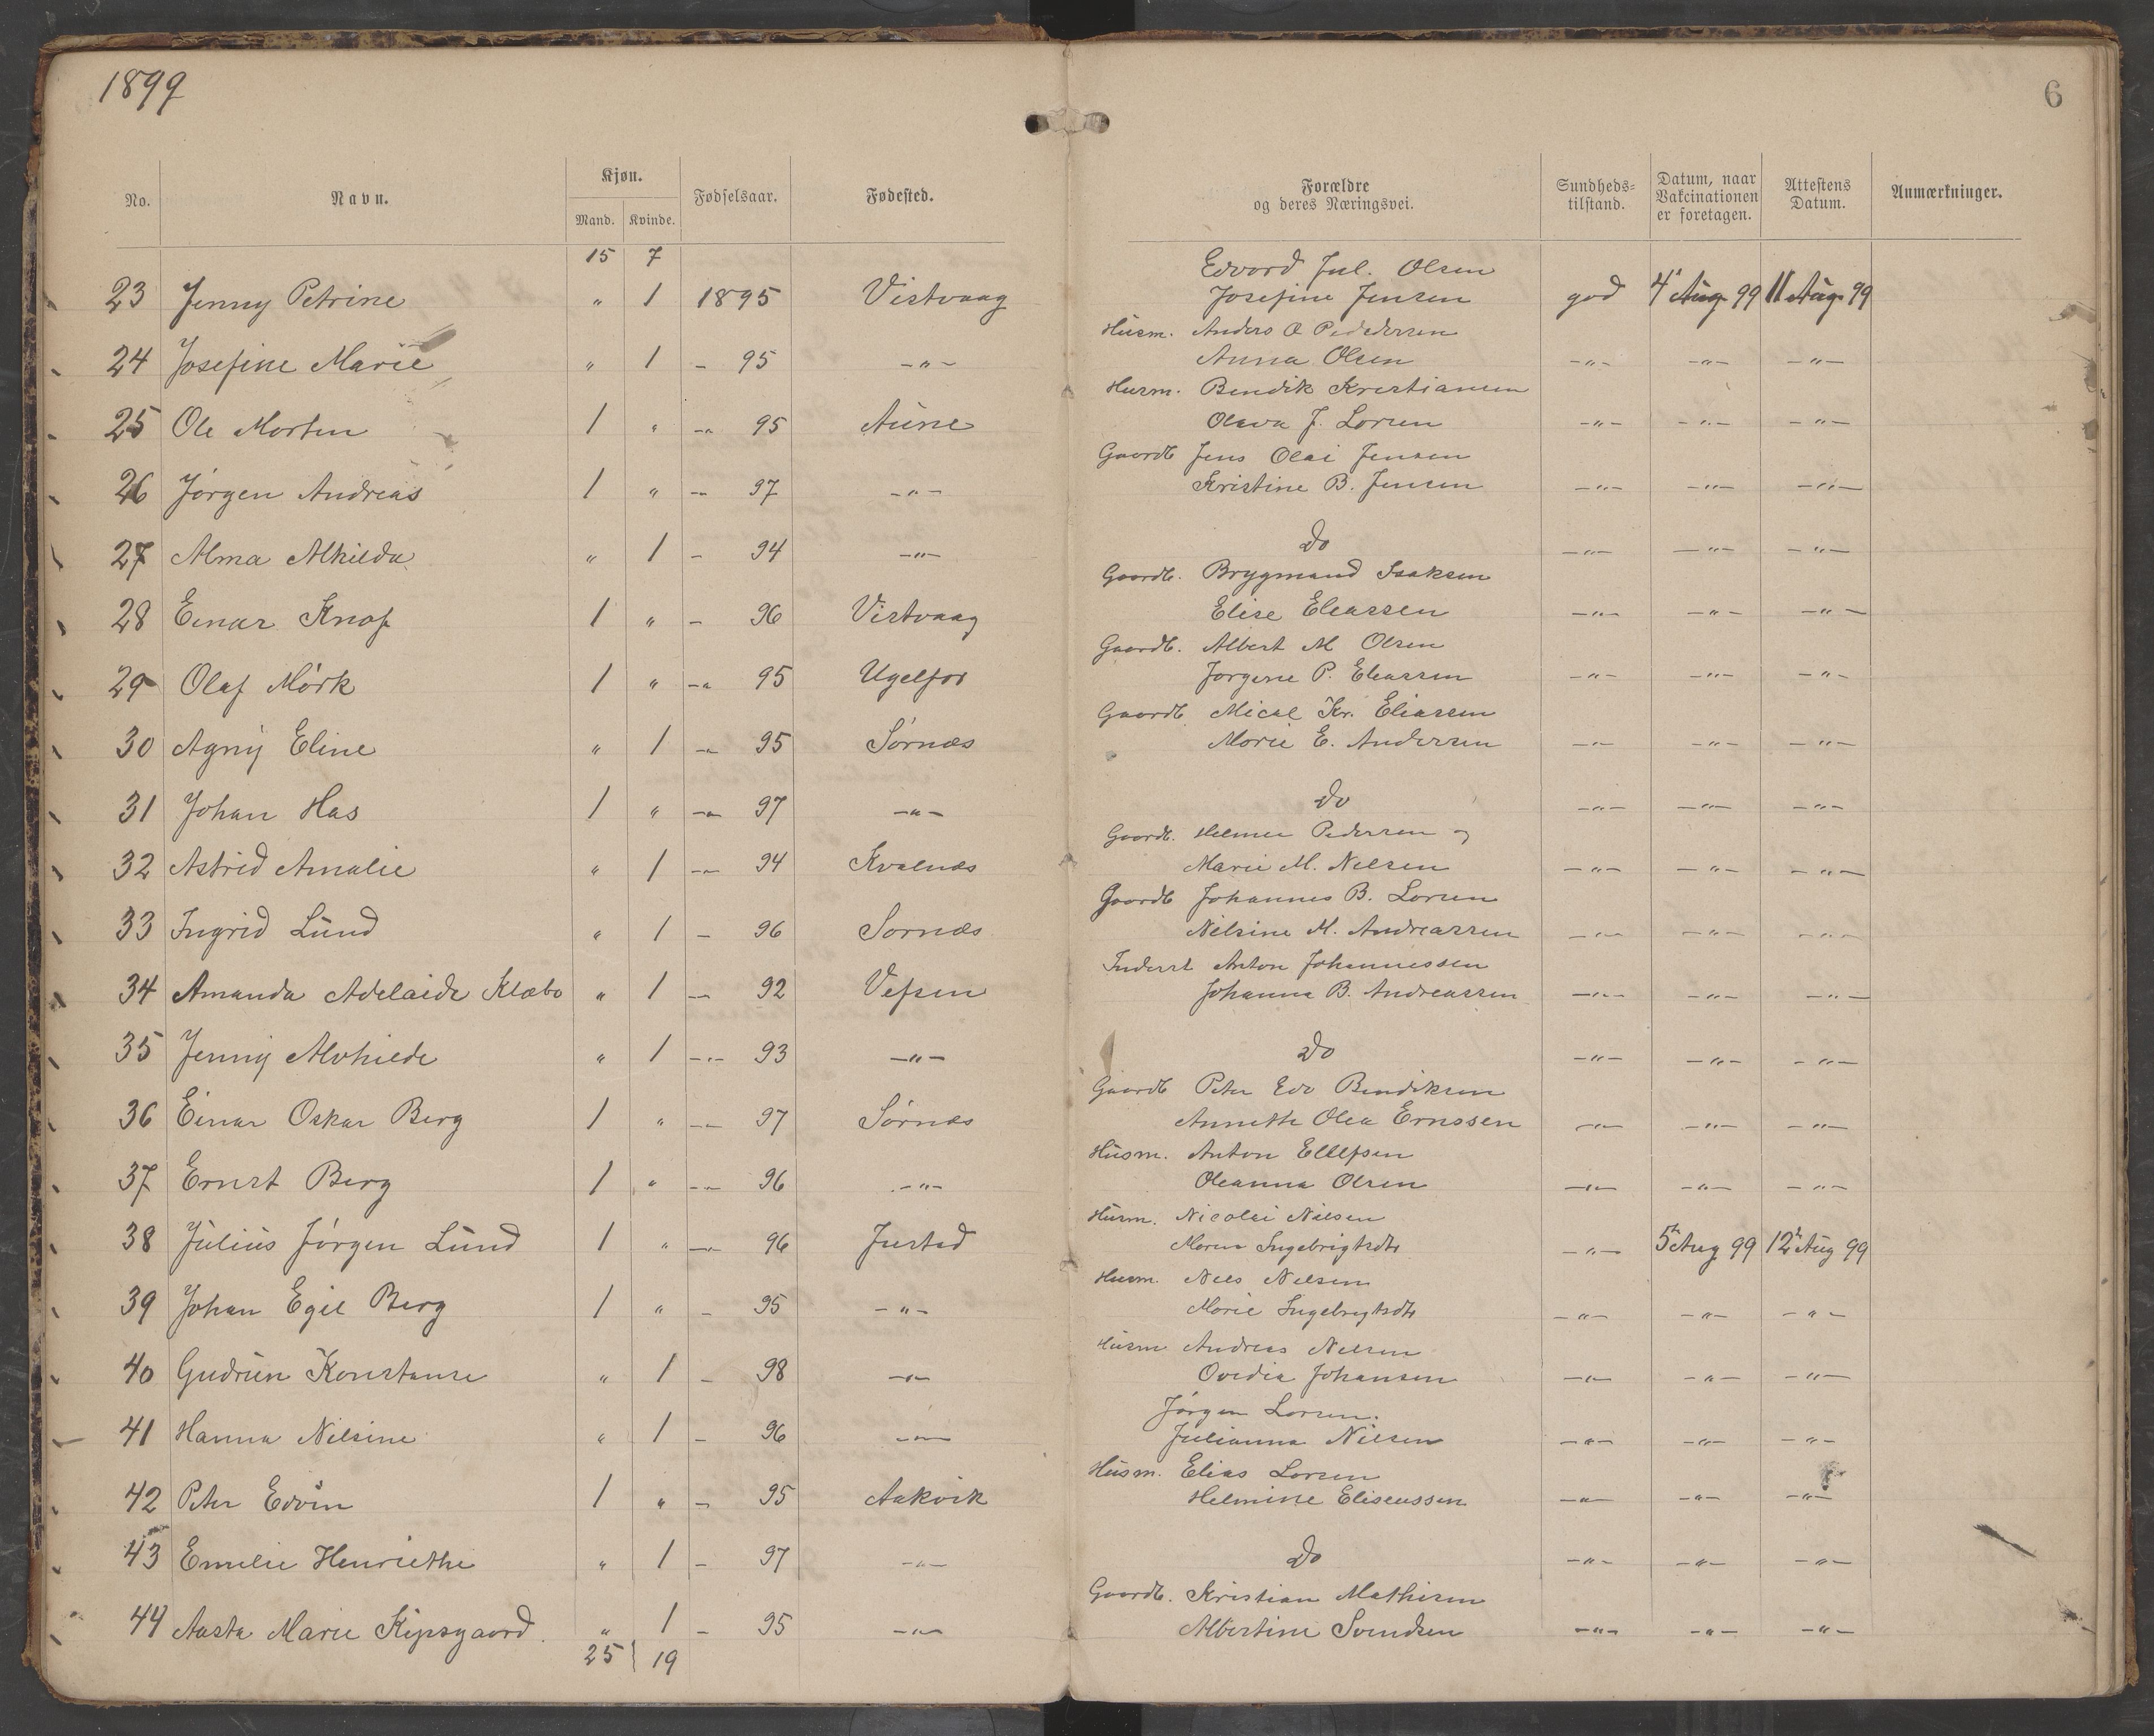 1899
6
No. Navn. Kjøn. Mand. Kvinde. Fødselsaar. Fødested. Forældre og deres Næringsvei. Sundheds-tilstand. Datum, naar Vakcinationen er foretagen. Attestens Datum. Anmærkninger.
15 7
Edvard Jul. Olsen
23 Jenny Petrine " 1 1895 Vistvaag Josefine Jensen god 4 Aug. 99 11 Aug. 99
Husm. Anders O Pedersen
24 Josefine Marie " 1 - 95 -"- Anna Olsen -"- -"- -"-
Husm. Bendik Kristiansen
25 Ole Morten 1 " -"- 95 Aune Oleva J. Lorsen -"- -"- -"-
Gaardb. Jens Olai Jensen
26 Jörgen Andreas 1 " -"- 97 -"- Kristine B. Jensen -"- -"- -"-
27 Alma Alhilda " 1 - 94 -"- Do -"- -"- -"-
Gaardb. Brygmand Isaksen
28 Einar Knof 1 " - 96 Vistvaag Elise Eleassen -"- -"- -"-
Gaardb. Albert M Olsen
29 Olaf Mörk 1 " -"- 95 Ugelfos Jorgine P. Eleassen -"- -"- -"-
Gaardb. Mical Kr. Eliassen
30 Agny Eline " 1 -"- 95 Sörnæs Marie E. Andersen -"- -"- -"-
31 Johan Has 1 " -"- 97 -"- Do -"- -"- -"-
Gaardb. Helmer Pedersen og
32 Astrid Amalie " 1 -"- 94 Kvalnæs Marie M. Nilsen -"- -"- -"-
Gaardb Johannes B. Lorsen
33 Ingrid Lund " 1 - 96 Sornæs Nilsine M. Andreassen -"- -"- -"-
Inderst Anton Johannessen
34 Amanda Adelaide Klæbo " 1 -"- 92 Vefsen Johanna B. Andreassen -"- -"- -"-
35 Jenny Alvhilde " 1 -"- 93 -"- Do -"- -"- -"-
Gaardb Peter Edv Bendiksen
36 Einar Oskar Berg 1 " -"- 97 Sörnæs Anneth Olea Ernssen -"- -"- -"-
Husm. Anton Ellefsen
37 Ernst Berg 1 " -"- 96 -"- Oleanna Olsen -"- -"- -"-
Husm. Nicolai Nilsen
38 Julius Jörgen Lund 1 " -"- 96 Justad Maren Ingebrigtsdtr -"- 5 Aug 99 12 Aug 99
Husm. Nils Nilsen
39 Johan Egil Berg 1 " - 95 -"- Marie Ingebrigtsdtr -"- -"- -"-
Husm Andreas Nilsen
40 Gudrun Konstanse " 1 - 98 -"- Ovedia Johansen -"- -"- -"-
Jörgen Lorsen.
41 Hanna Nilsine " 1 - 96 -"- Julianna Nilsen -"- -"- -"-
Husm. Elias Lorsen
42 Peter Edvin 1 " - 95 Aakvik Helmine Eliseussen -"- -"- -"-
43 Emelie Henriethe " 1 - 97 -"- Do -"- -"- -"-
Gaardb. Kristian Mathisen
44 Aasta Marie Kipsgaard. " 1 - 95 -"- Albertine Svendsen -"- -"- -"-
25 19